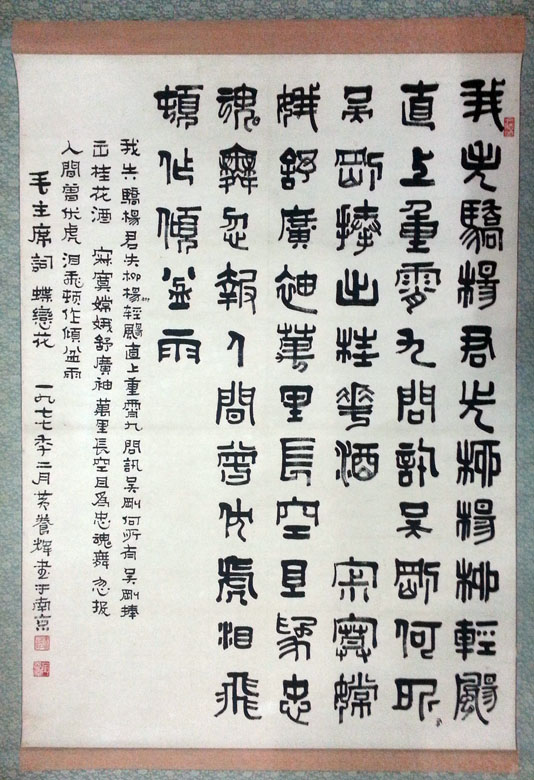 我失驕楊君失柳楊柳輕颺
直上重霄九問訊吳剛何所
吳剛捧出桂花酒 寂寞嫦
娥舒廣袖萬里長空且為忠
魂舞忽報人間曾伏虎泪飛
頓作傾盆雨
我失驕楊君失柳楊柳輕颺直上重霄九 問訊吳剛何所有 吳剛捧
出桂花酒 寂寞嫦娥舒廣袖 萬里長空且為忠魂舞 忽报
人間曾伏虎 泪飛頓作傾盆雨
毛主席詞 蝶戀花 一九七七年十二月黃養輝書于南京